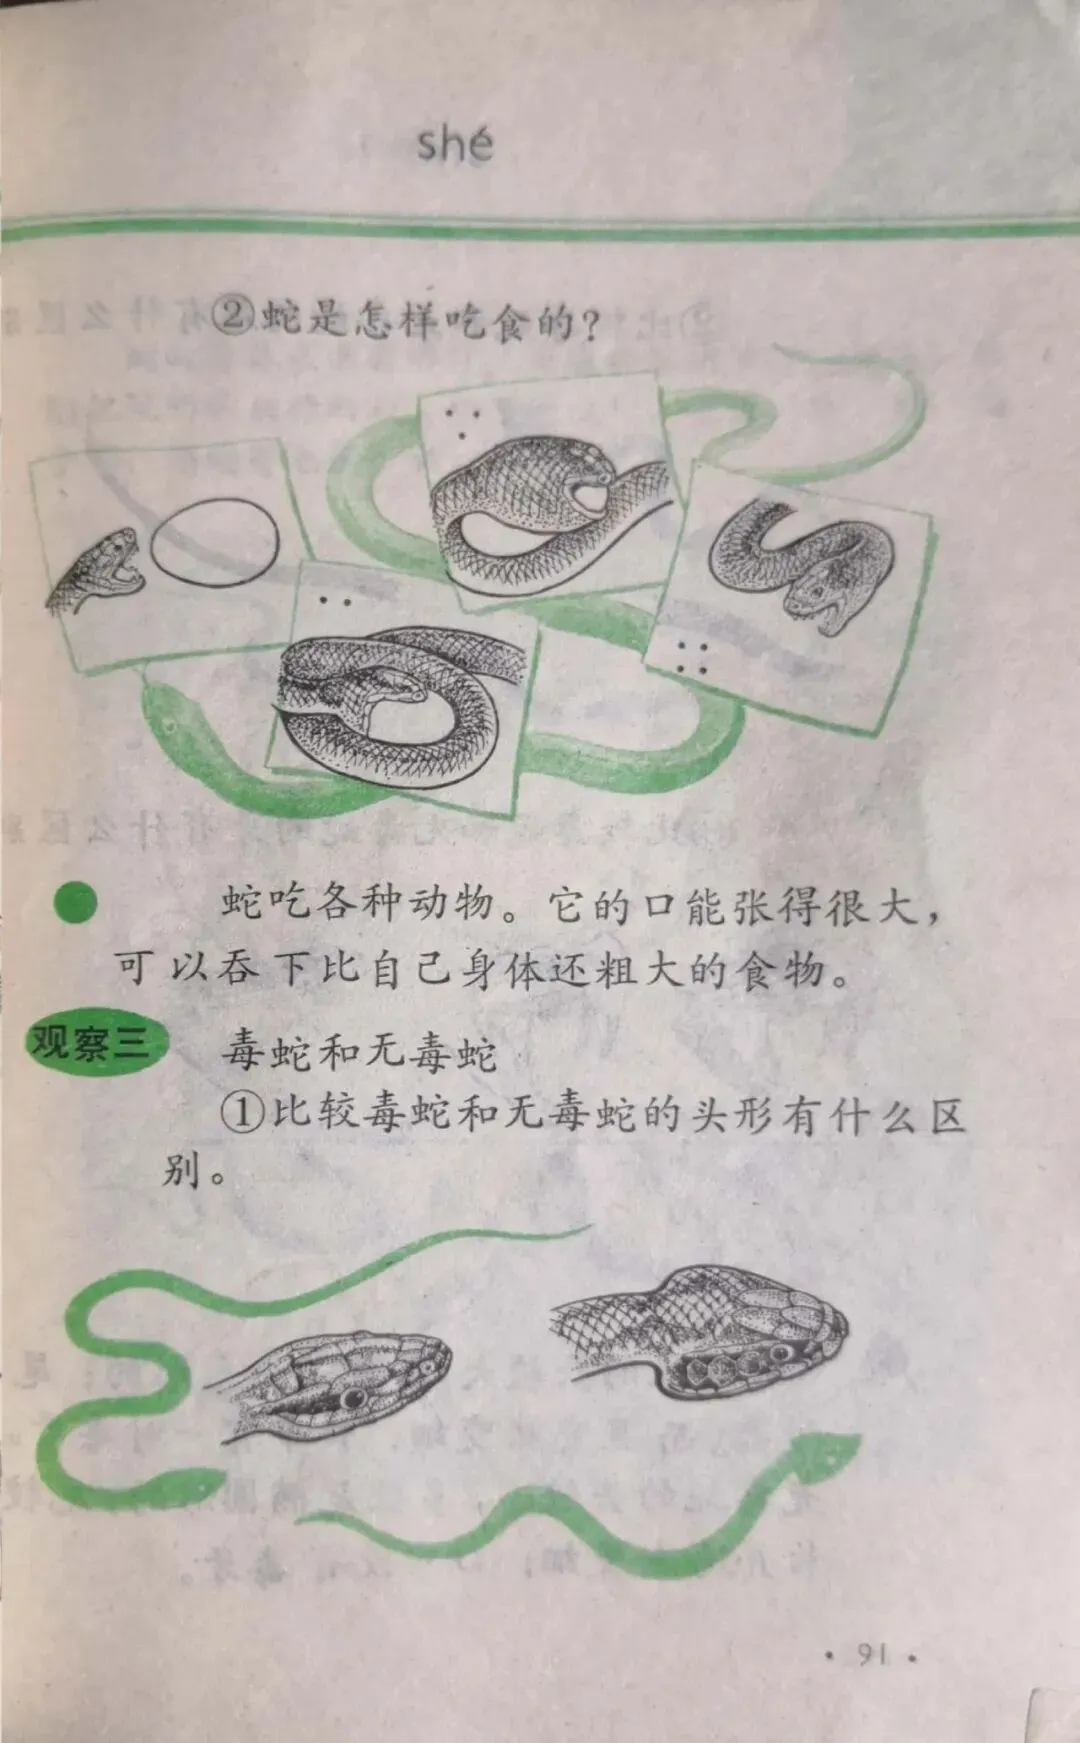 shé
②蛇是怎样吃食的?
蛇吃各种动物。它的口能张得很大，
可以吞下比自己身体还粗大的食物。
观察三
毒蛇和无毒蛇
①比较毒蛇和无毒蛇的头形有什么区
别。
·91·